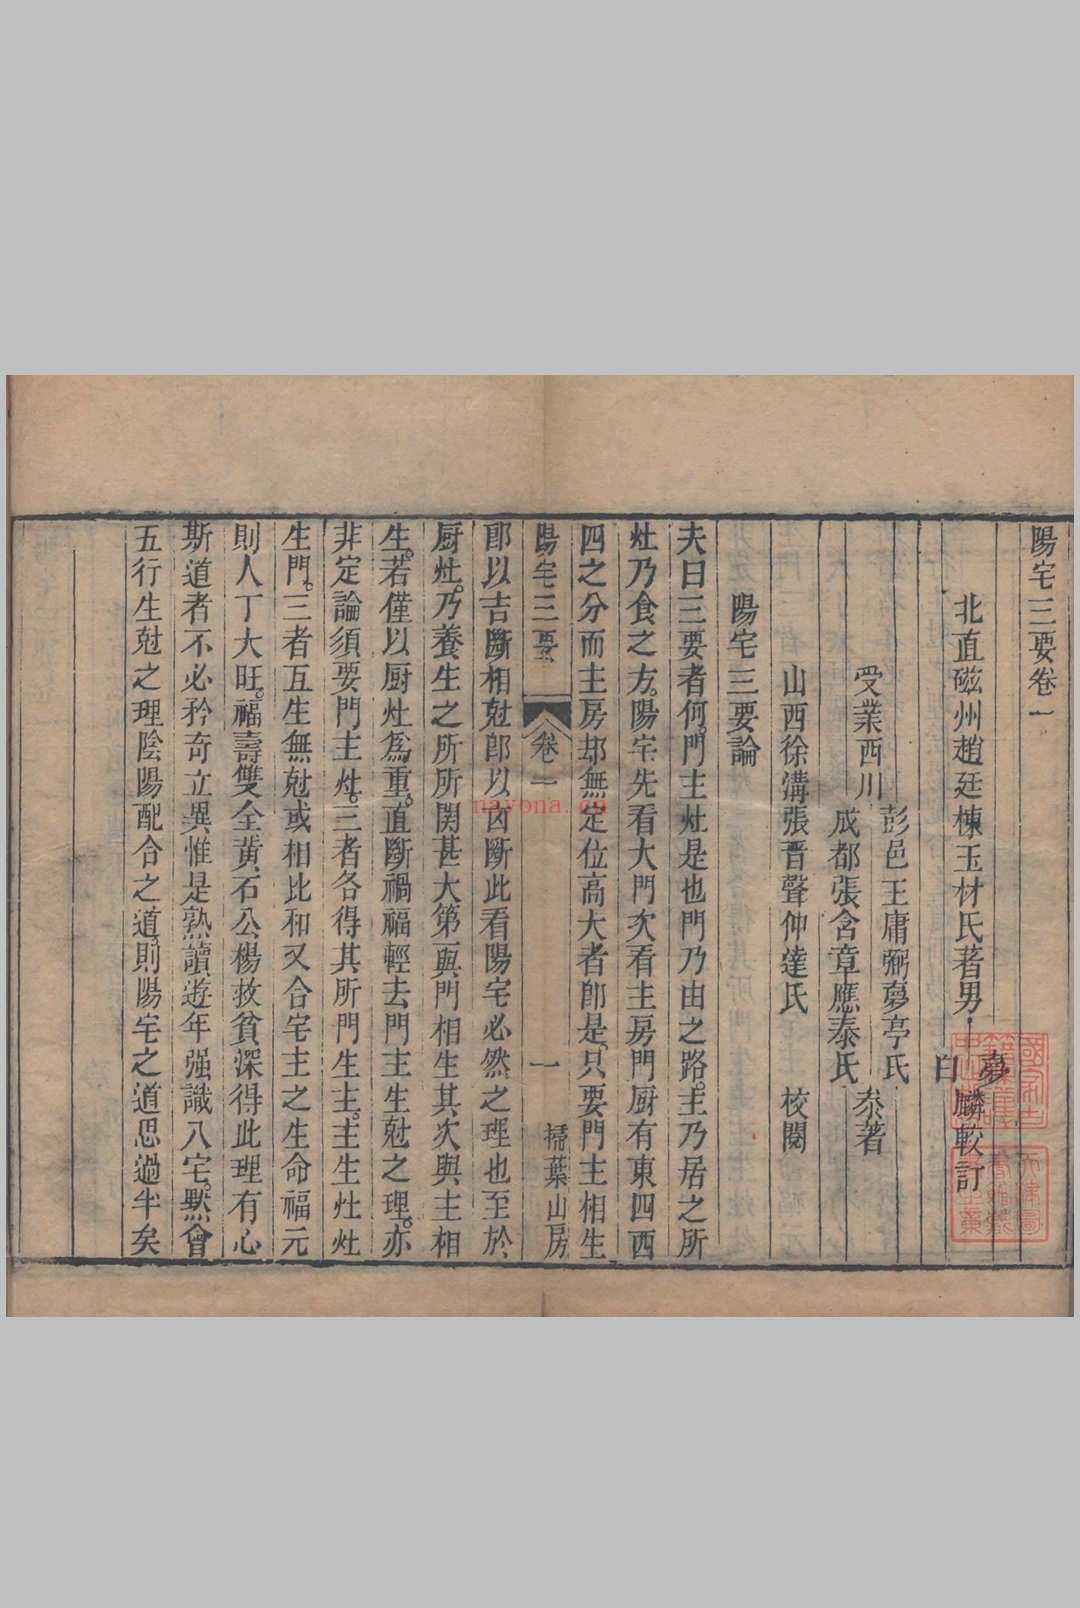 陽宅三要卷一
北直磁州趙廷棟玉材氏著男
夢
白
麟較訂
彭邑王庸弼夢亭氏
受業西川
成都張含章應泰氏
叅著
山西徐溝張晋聲仲達氏
校閱
陽宅三要論
夫曰三要者何門主灶是也門乃由之路主乃居之所
灶乃食之方陽宅先看大門次看主房門厨有東四西
四之分而主房却無定位高大者即是只要門主相生
陽宅三要
卷一
一
掃葉山房
即以吉斷相尅即以凶斷此看陽宅必然之理也至於
厨灶乃養生之所所関甚大第一與門相生其次與主相
生若僅以厨灶為重直斷禍福輕去門主生尅之理亦
非定論須要門主灶三者各得其所門生主主生灶灶
生門三者互生無尅或相比和又合宅主之生命福元
則人丁大旺福壽雙全黄石公楊救貧深得此理有心
斯道者不必矜奇立異惟是熟讀遊年强識八宅黙會
五行生尅之理陰陽配合之道則陽宅之道思過半矣
nayona.cn